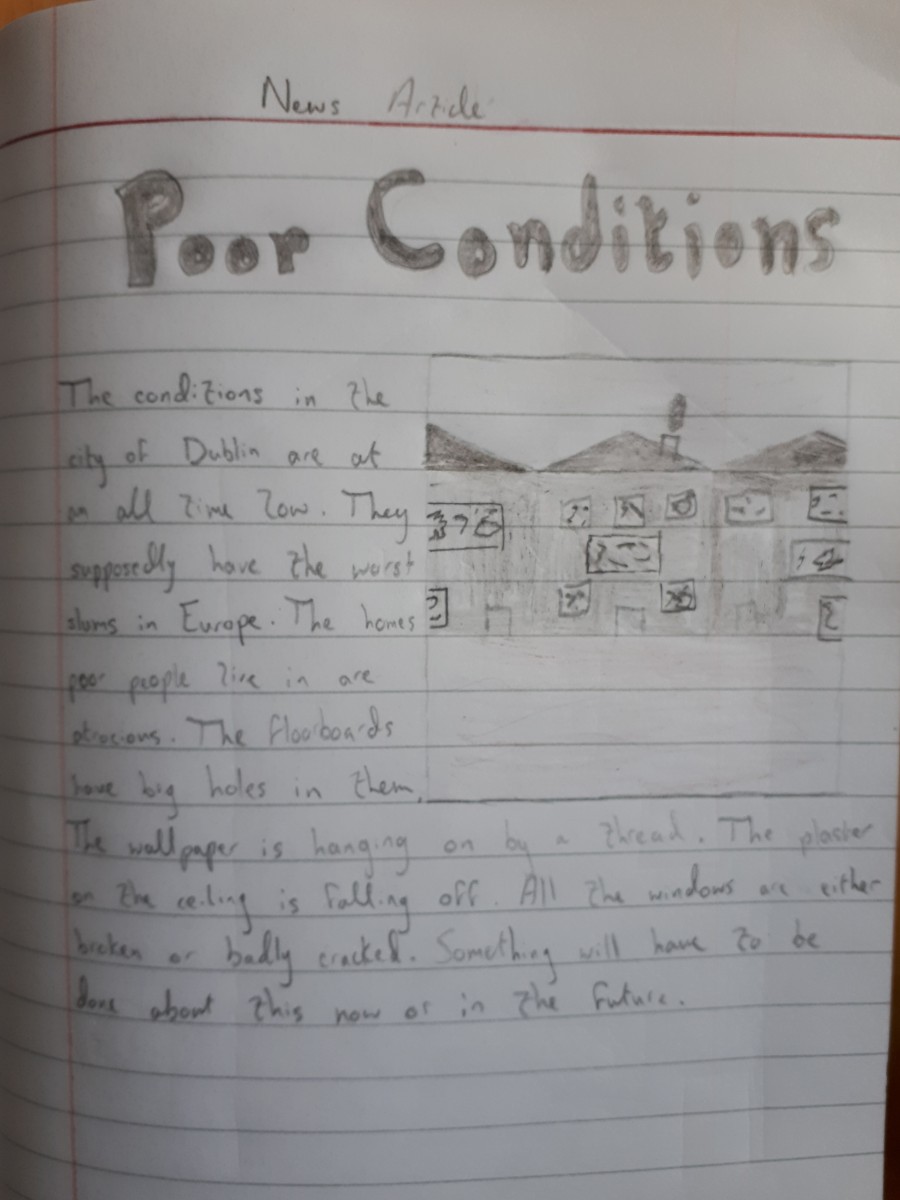 News Article
Poor Conditions
The conditions in the
city of Dublin are at
an all time low. They
supposedly have the worst
slums in Europe. The homes
poor people live in are
atrocious. The floorboards
have big holes in them.
The wallpaper is hanging on by a thread. The plaster
on the ceiling is falling off. All the windows are either
broken or badly cracked. Something will have to be
done about this now or in the future.